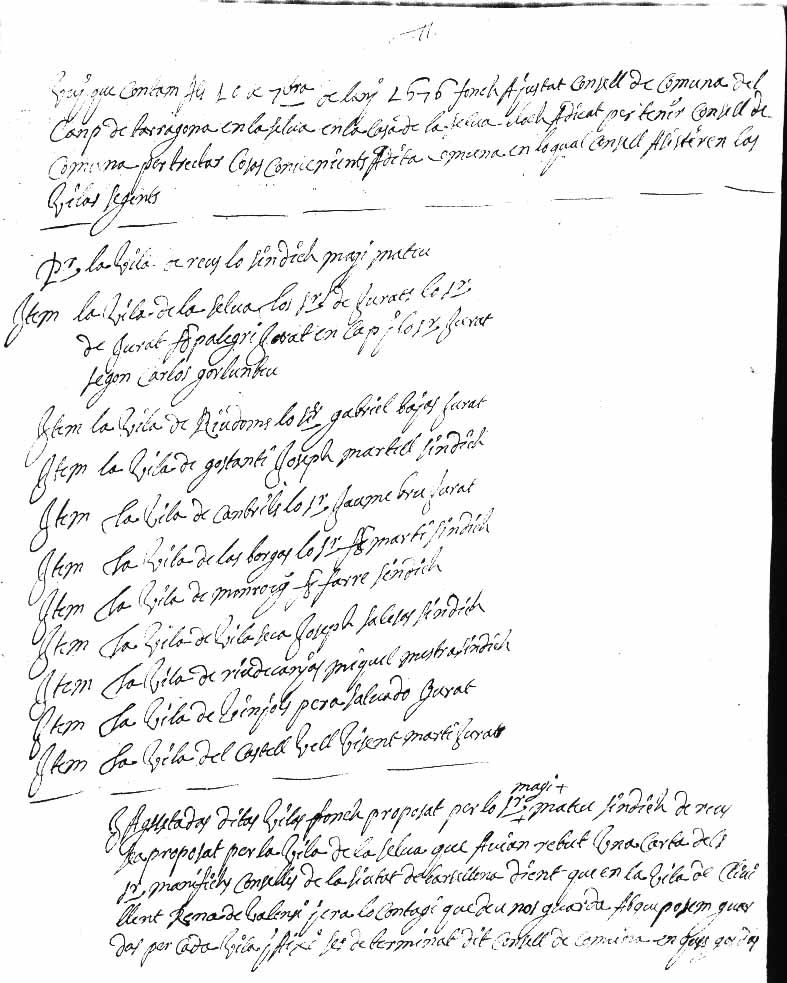 Vuy que contam als 10 de 7bra de lany 1676 fonch Ajustat Consell de Comuna del
Canp de tarragona en la selva en la Casa de la selva dedicat per tenir Consell de
Comuna per trectar Cosos Convenients A dita Comuna en lo qual Consell Asistiren las
Vilas segents
Pr. la Vila de reus lo sindich magi mateu
Item la Vila de la selva los srs de Jurats lo sr.
de Jurat palegri Jorat en Cap j lo sr. Jurat
segon Carlos
Item la Vila de Riudoms lo sr gabriel bajas Jurat
Item la Vila de gostanti Joseph martell sindich
Item la Vila de Canbrils lo sr Jaume bru Jurat
Item la Vila de las borgas lo sr fr marti sindich
Item la Vila de monroig fr farre sindich
Item la Vila de Vila seca Joseph salesas sindich
Item la Vila de riudecanjas miquel mestra sindich
Item la Vila de Vinjols pera salvado Jurat
Item la Vila del Castell Vell Visent marti Jurat
magi +
J Agustadas ditas Vilas fonch proposat per lo sr + mateu sindich de reus
ha proposat per la Vila de la selva que Avian rebut Una Carta dels
sr. manifichs Consellés de la siutat de barsellona dient que en la Vila de Crivi
llent Rena de Valensi j era lo Contagi que deu nos guarda As que posem guar
das per Cada Vila j Axi es determinat dit Consell de Comuna en